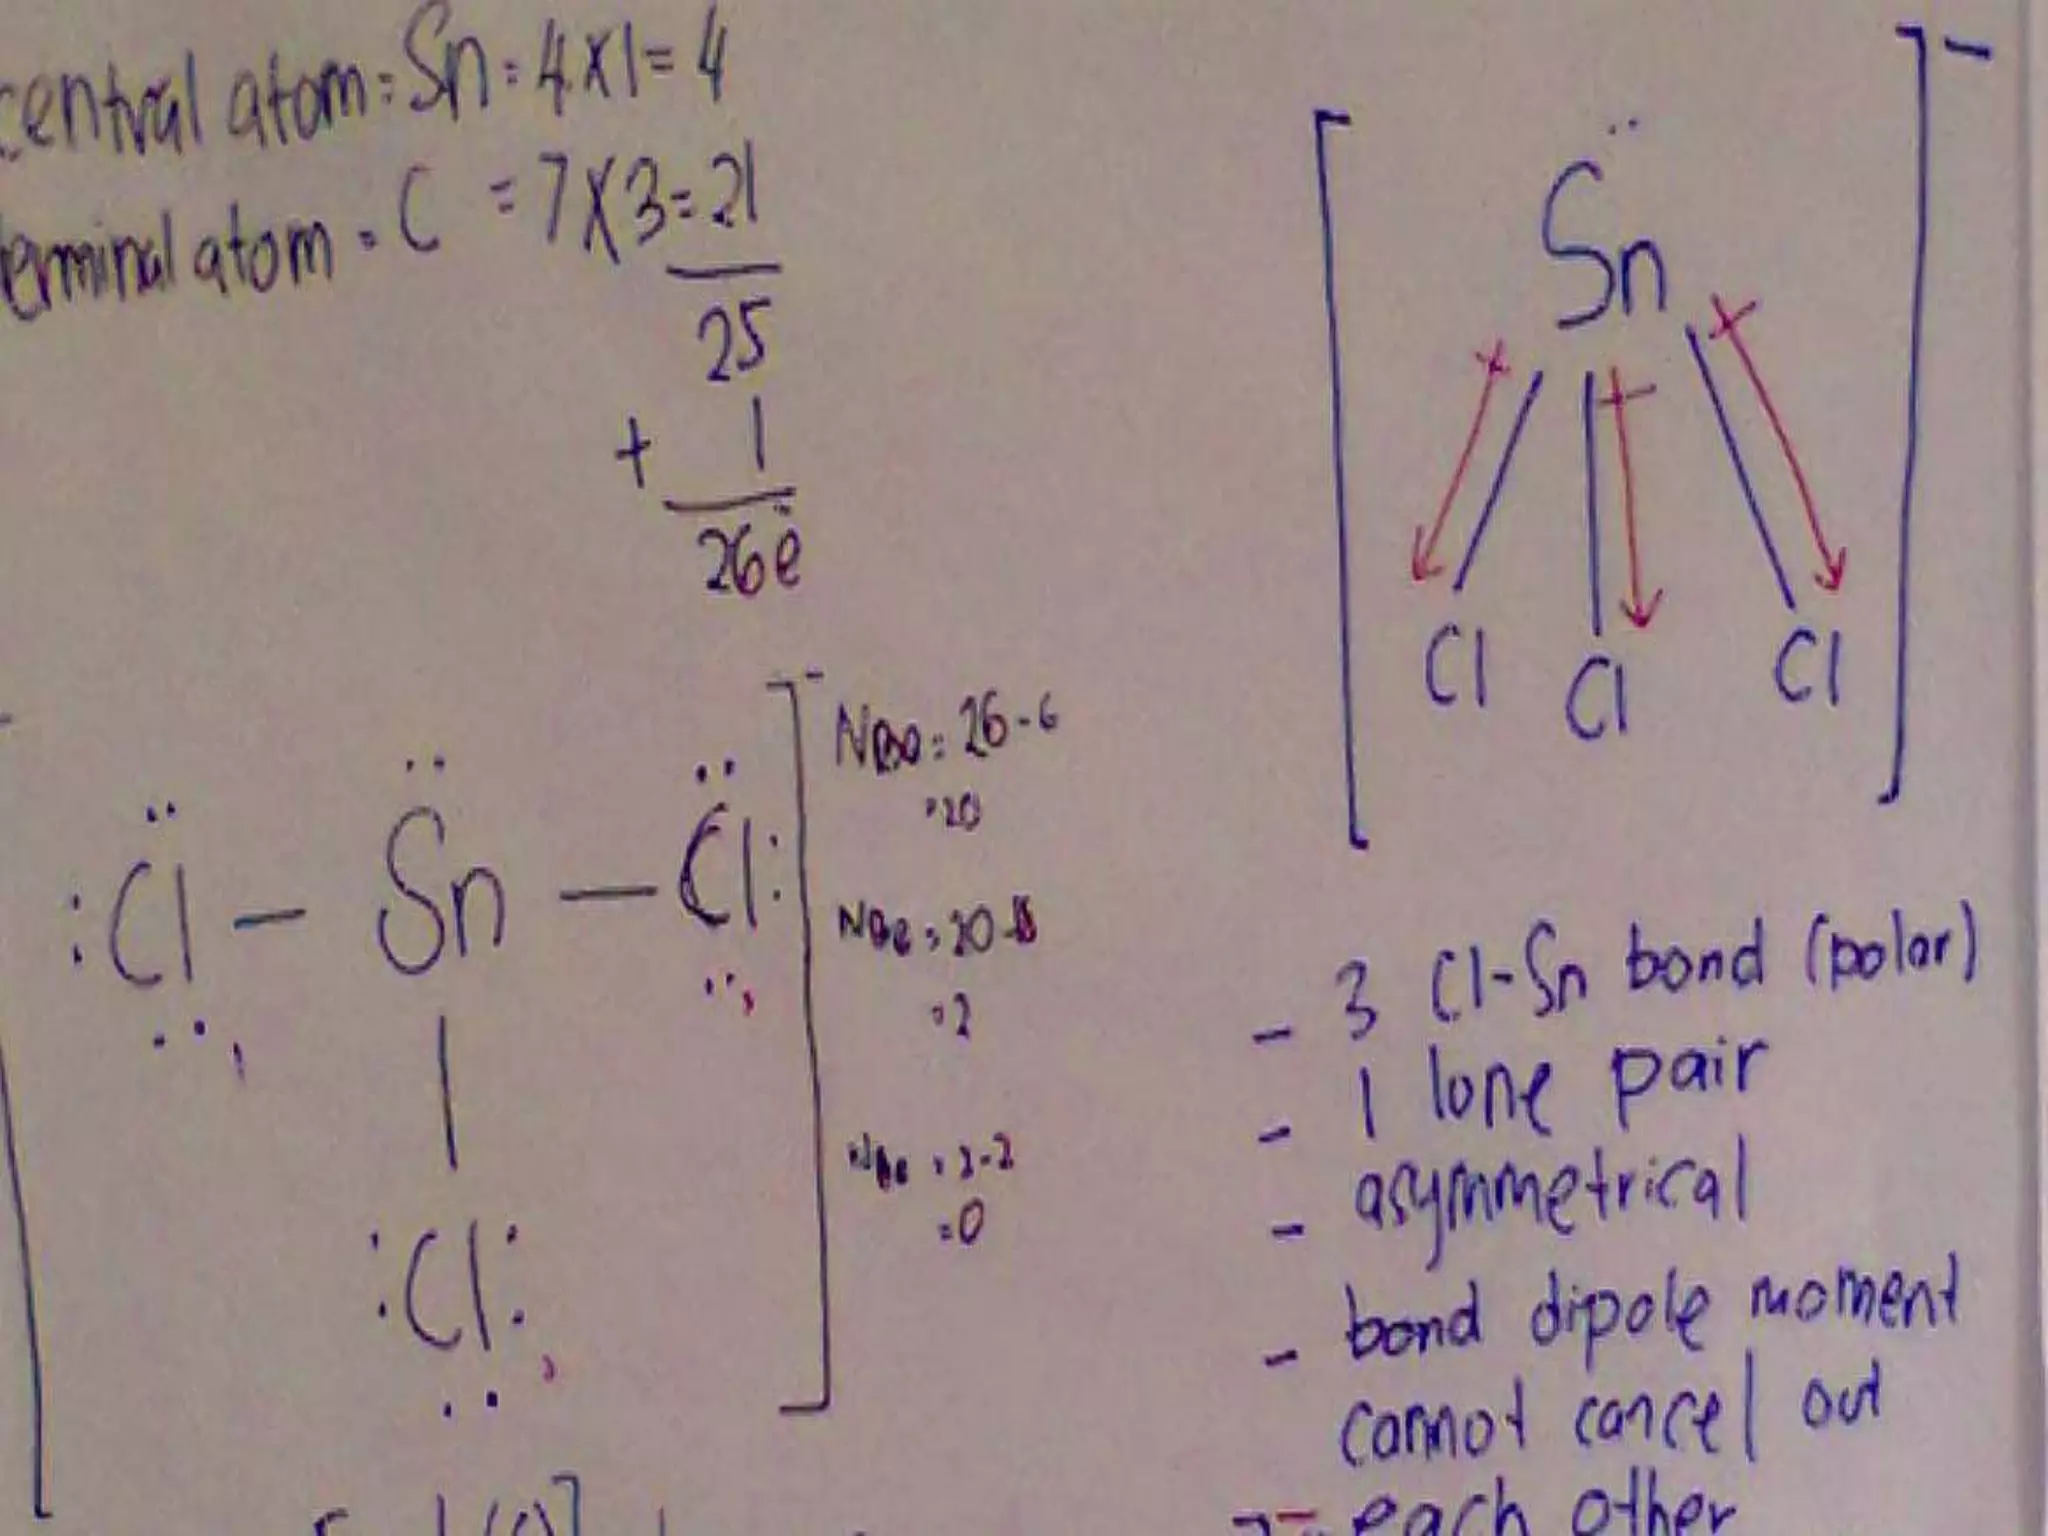 central atom = Sn = 4 x 1 = 4
terminal atom = C = 7 x 3 = 21
25
+ 1
26 e
Cl - Sn - Cl
Cl
= 26 - 6
= 20
= 20 - 18
= 2
= 2 - 2
= 0
Sn
Cl Cl Cl
- 3 Cl-Sn bond (polar)
- 1 lone pair
- asymmetrical
- bond dipole moment
cannot cancel out
each other